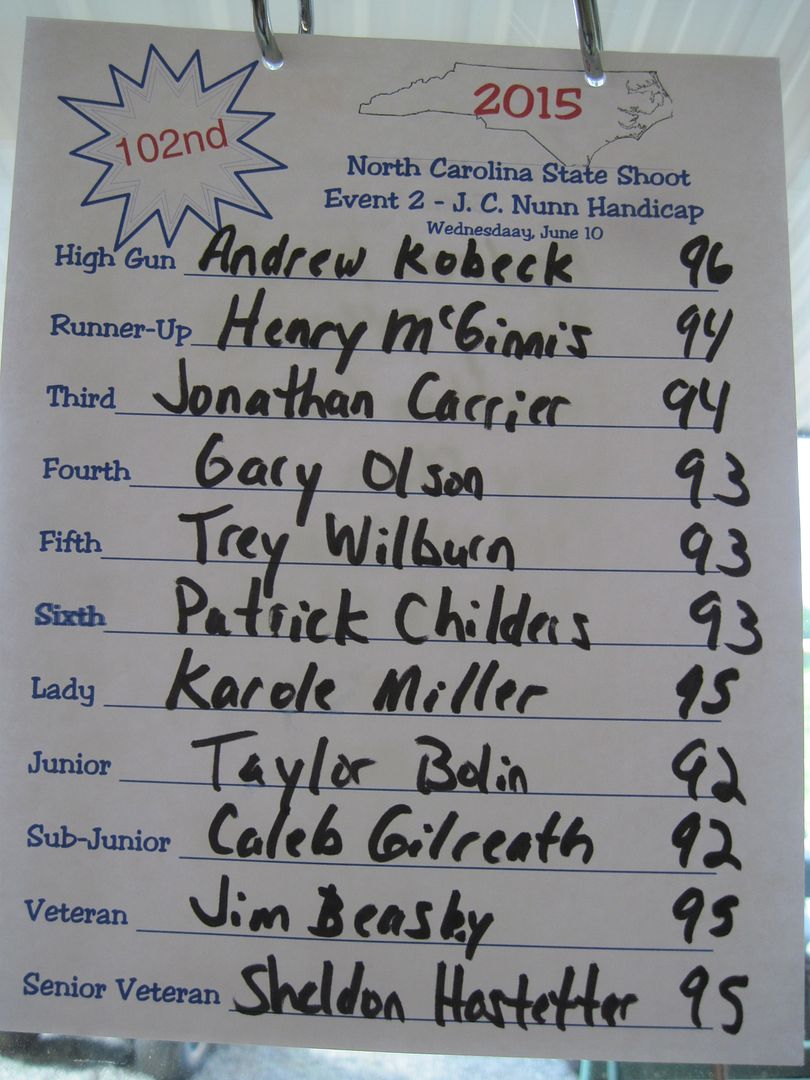 102nd
2015
North Carolina State Shoot
Event 2 - J. C. Nunn Handicap
Wednesdaay, June 10
High Gun Andrew Kobeck 96
Runner-Up Henry McGinnis 94
Third Jonathan Carrier 94
Fourth Gary Olson 93
Fifth Trey Wilburn 93
Sixth Patrick Childers 93
Lady Karole Miller 95
Junior Taylor Bolin 92
Sub-Junior Caleb Gilreath 92
Veteran Jim Beasley 95
Senior Veteran Sheldon Hostetter 95